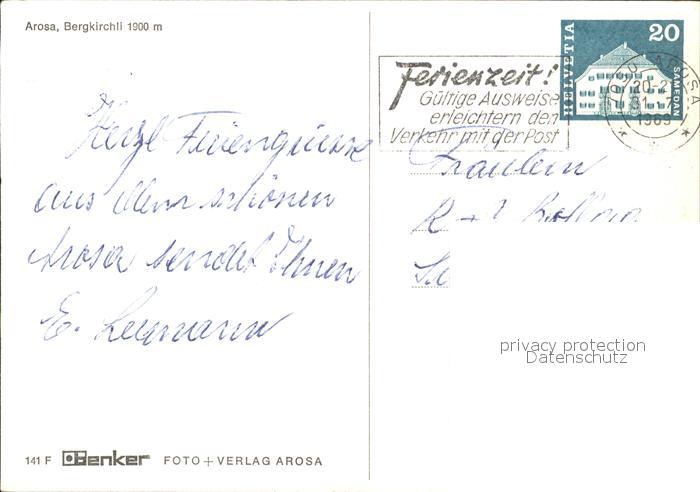 Arosa, Bergkirchli 1900 m
Herzl Feriengrüsse
aus dem schönen
Arosa sendet Ihnen
E. Leumann
141 F Denker FOTO + VERLAG AROSA
Ferienzeit!
Gültige Ausweise
erleichtern den
Verkehr mit der Post
HELVETIA
20
SAMEDAN
1969
Fräulein
privacy protection
Datenschutz